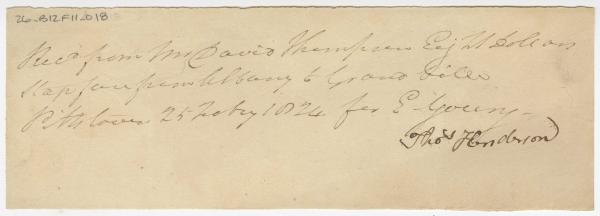 26-B12F11-018
Recd from Mr David Thompson Eight Dollars
Stage fare from Albany to Grandville
25 Feby 1824 for E. Young
Thos Henderson